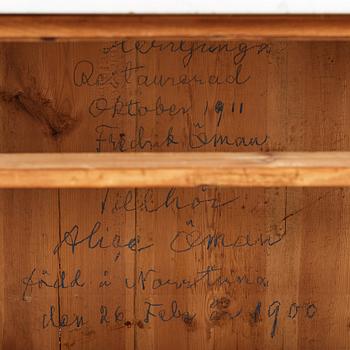 Herrljunga
Restaurerad
Oktober 1911
Fredrik Öman
Tillhör
Alice Öman
född i Norrtuna
den 26 Febr 1900